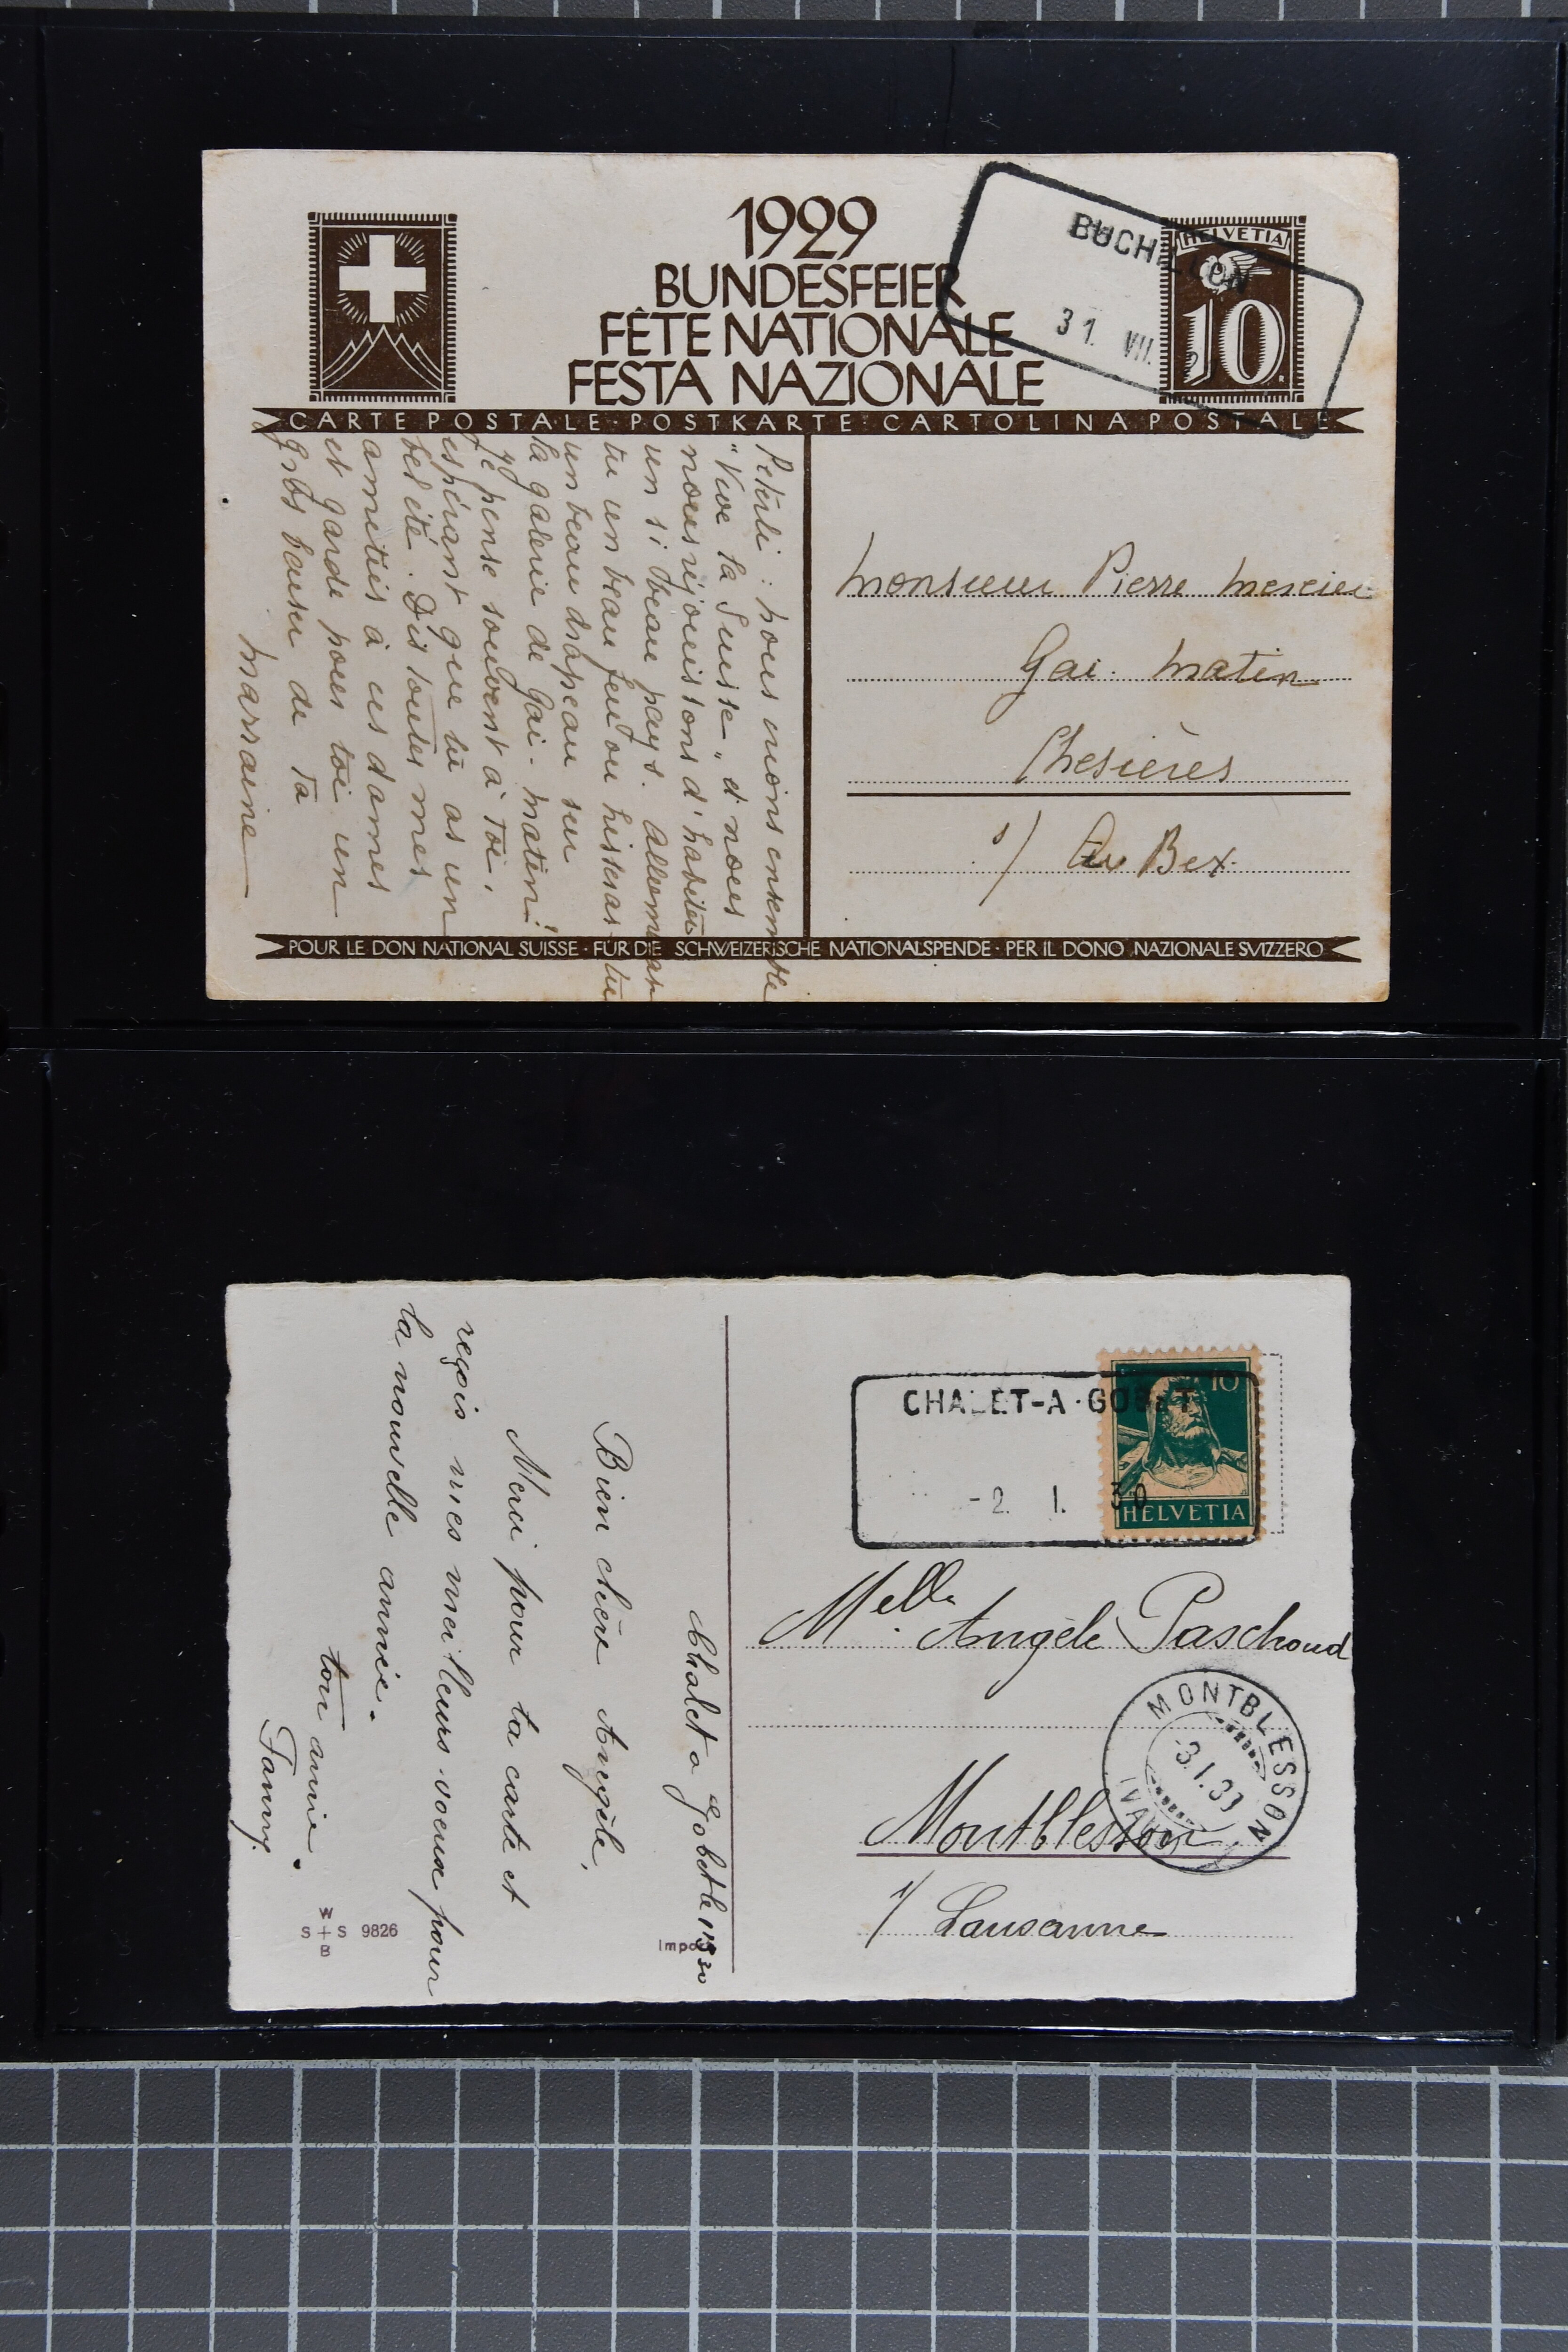 1929
BUNDESFEIER
FÊTE NATIONALE
FESTA NAZIONALE
BUCHILLON
31. VII.
HELVETIA
10
CARTE POSTALE · POSTKARTE · CARTOLINA POSTALE
Peterli : nous crions ensemble
"Vive la Suisse", et nous
nous réjouissons d'habiter
un si beau pays. Allumeras
tu un beau feu ou hisseras-tu
un beau drapeau sur
la galerie de Gai-Matin!
Je pense souvent à toi,
espérant que tu as un
bel été. Dis toutes mes
amitiés à ces dames
et garde pour toi un
gros baiser de Ta
Marraine
Monsieur Pierre Mercier
Gai-Matin
Chesières
s/ Bex
POUR LE DON NATIONAL SUISSE · FÜR DIE SCHWEIZERISCHE NATIONALSPENDE · PER IL DONO NAZIONALE SVIZZERO
CHALET-A-GOBET
-2. 1. 30
10
HELVETIA
Chalet à Gobet le 1 1 30
Bien chère Angèle,
Merci pour ta carte et
reçois mes meilleurs voeux pour
la nouvelle année.
ton amie.
Fanny.
Melle Angèle Paschoud
MONTBLESSON
-3.1.30
(VAUD)
Montblesson
s/ Lausanne
W
S+S 9826
B